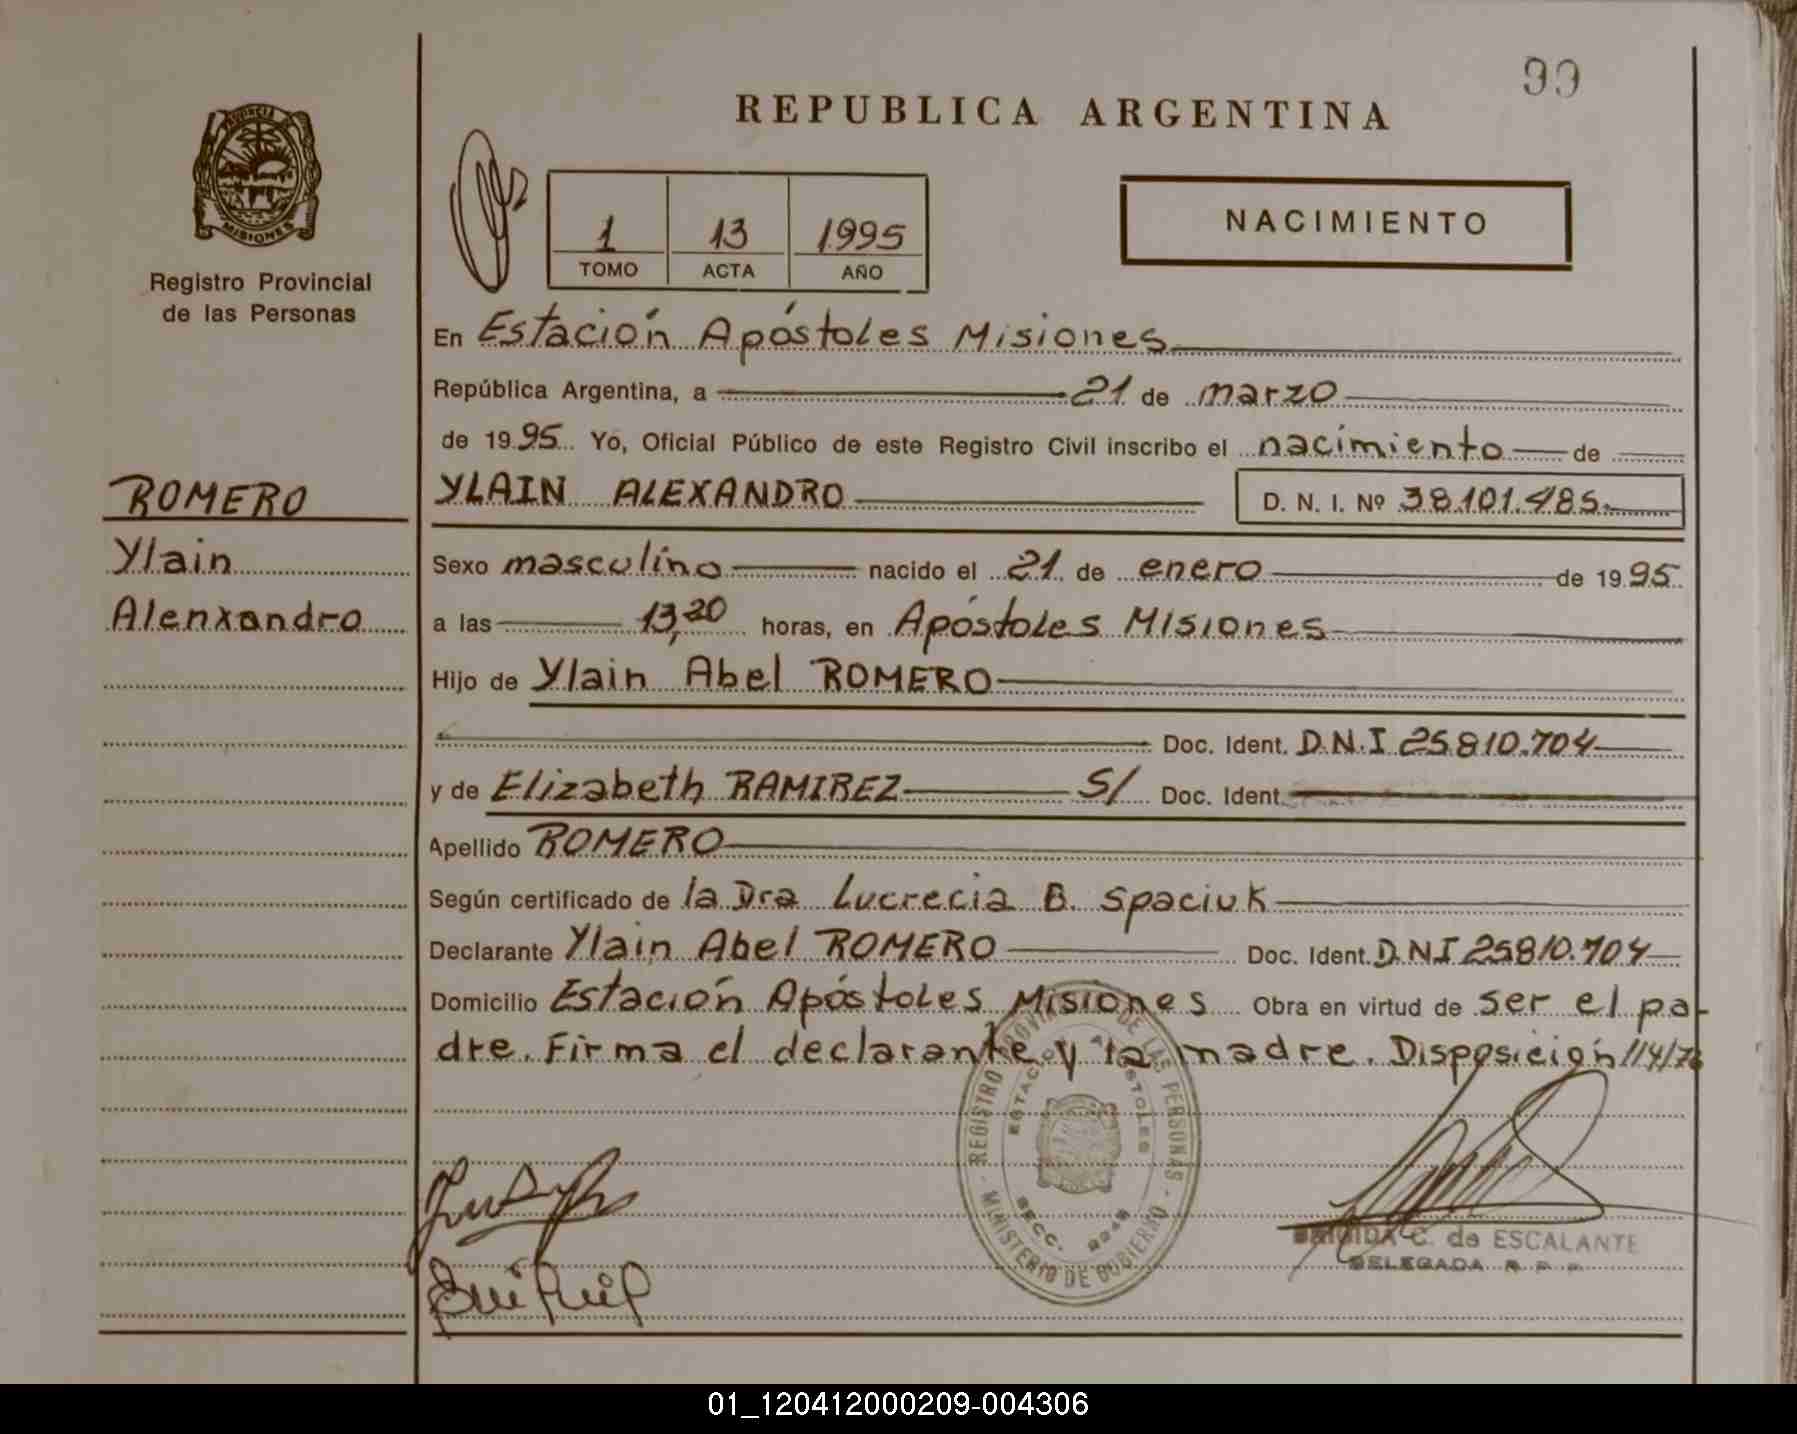 99
REPUBLICA ARGENTINA
PROVINCIA
MISIONES
Registro Provincial
de las Personas
1 13 1995
TOMO ACTA AÑO
NACIMIENTO
En Estación Apóstoles Misiones
República Argentina, a 21 de marzo
de 1995 Yo, Oficial Público de este Registro Civil inscribo el nacimiento de
YLAIN ALEXANDRO D. N. I. Nº 38.101.485
ROMERO
Ylain
Alenxandro
Sexo masculino nacido el 21 de enero de 1995
a las 13,20 horas, en Apóstoles Misiones
Hijo de Ylain Abel ROMERO
Doc. Ident. D.N.I 25.810.704
y de Elizabeth RAMIREZ S/ Doc. Ident.
Apellido ROMERO
Según certificado de la Dra Lucrecia B. Spaciuk
Declarante Ylain Abel ROMERO Doc. Ident. D.NI 25.810.704
Domicilio Estación Apóstoles Misiones Obra en virtud de ser el pa-
dre. Firma el declarante y la madre. Disposición 114/76
REGISTRO PROVINCIAL DE LAS PERSONAS
ESTACION APOSTOLES
SECC.
MINISTERIO DE GOBIERNO
BRIGIDA C. de ESCALANTE
DELEGADA R. P. P.
01_120412000209-004306